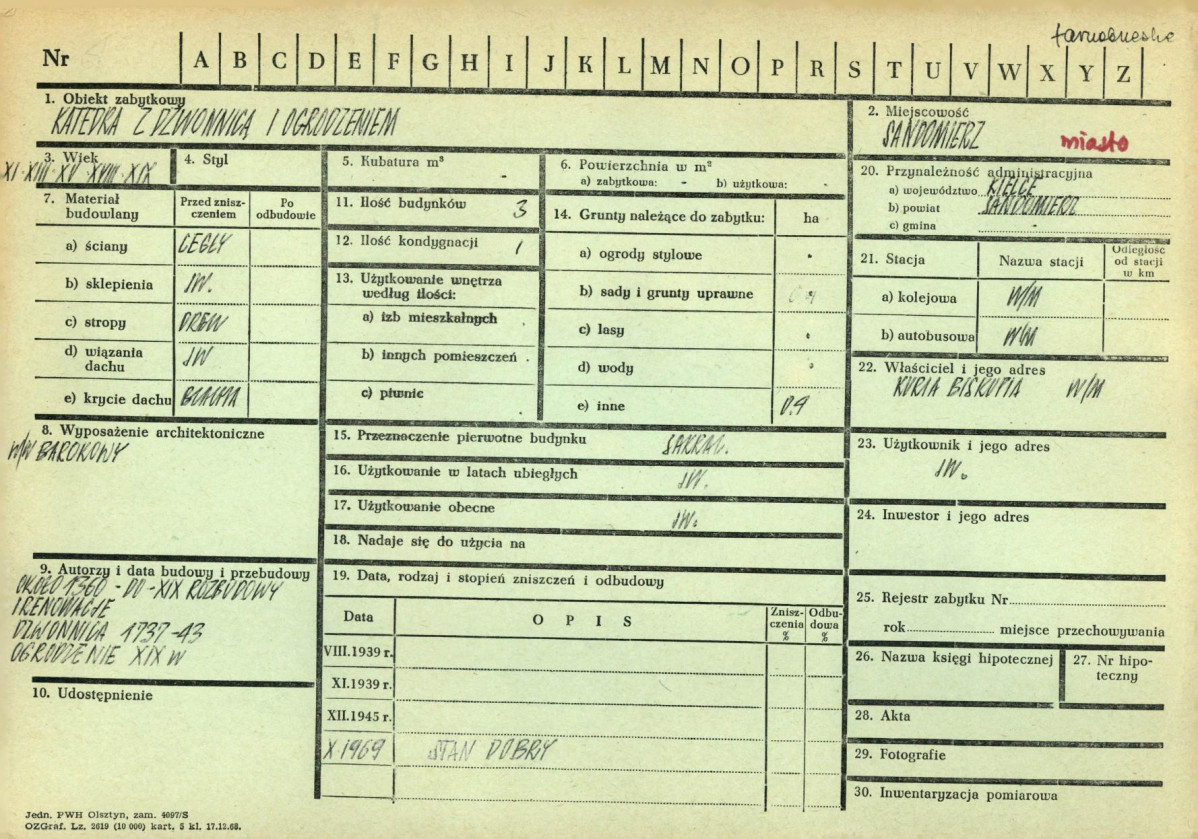 tarnobrzeskie
Nr A B C D E F G H I J K L M N O P R S T U V W X Y Z
1. Obiekt zabytkowy
KATEDRA Z DZWONNICĄ I OGRODZENIEM
2. Miejscowość
SANDOMIERZ miasto
3. Wiek
XI·XIII·XV·XVIII·XIX
4. Styl
5. Kubatura m³
6. Powierzchnia w m²
a) zabytkowa: - b) użytkowa: -
7. Materiał budowlany
Przed zniszczeniem
Po odbudowie
a) ściany CEGŁY
b) sklepienia JW.
c) stropy DREW
d) wiązania dachu JW
e) krycie dachu BLACHA
8. Wyposażenie architektoniczne
W/W BAROKOWY
9. Autorzy i data budowy i przebudowy
OKOŁO 1360 - DO - XIX ROZBUDOWY
I RENOWACJE
DZWONNICA 1737-43
OGRODZENIE XIX W
10. Udostępnienie
11. Ilość budynków 3
12. Ilość kondygnacji 1
13. Użytkowanie wnętrza
według ilości:
a) izb mieszkalnych
b) innych pomieszczeń
c) piwnic
14. Grunty należące do zabytku: ha
a) ogrody stylowe
b) sady i grunty uprawne
c) lasy
d) wody
e) inne 0.9
15. Przeznaczenie pierwotne budynku SAKRAL.
16. Użytkowanie w latach ubiegłych JW.
17. Użytkowanie obecne JW.
18. Nadaje się do użycia na
19. Data, rodzaj i stopień zniszczeń i odbudowy
Data OPIS Zniszczenia % Odbudowa %
VIII.1939 r.
XI.1939 r.
XII.1945 r.
X.1969 STAN DOBRY
20. Przynależność administracyjna
a) województwo KIELCE
b) powiat SANDOMIERZ
c) gmina -
21. Stacja Nazwa stacji Odległość od stacji w km
a) kolejowa W/M
b) autobusowa W/M
22. Właściciel i jego adres
KURIA BISKUPIA W/M
23. Użytkownik i jego adres
JW.
24. Inwestor i jego adres
25. Rejestr zabytku Nr
rok miejsce przechowywania
26. Nazwa księgi hipotecznej
27. Nr hipoteczny
28. Akta
29. Fotografie
30. Inwentaryzacja pomiarowa
Jedn. PWH Olsztyn, zam. 4097/S
OZGraf. Lz. 2619 (10 000) kart, 5 kl. 17.12.68.